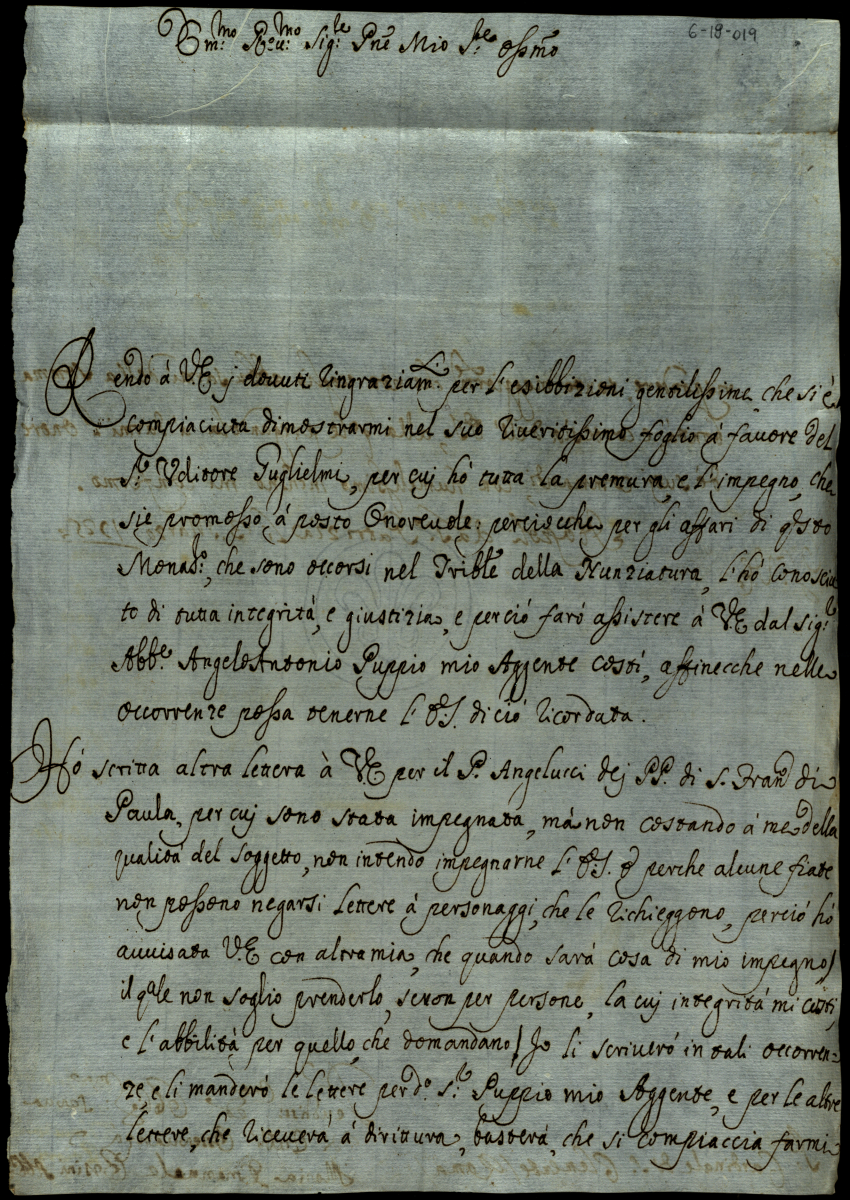 6-19-019
Em.mo Re.mo Sig.re Pne Mio S.re ossmo
Rendo à V.E. j dovuti ringraziam.ti per l'esibbizioni gentilissime che si è
compiaciuta dimostrarmi nel suo riveritissimo foglio à favore del
S.r Vditore Guglielmi, per cuj hò tutta la premura, e l'impegno, che
sie promosso à posto Onorevole: perciocche per gli affari di qsto
Monas.o, che sono occorsi nel Trible della Nunziatura, l'hò conosciu
to di tutta integrità, e giustizia, e perciò farò assistere à V.E. dal sig.r
Abb.e Angelo Antonio Puppio mio Aggente costì, affinecche nelle
occorrenze possa tenerne l'E.S. di ciò ricordata.
Hò scritta altra lettera à V.E. per il P. Angelucci dej PP. di S. Fran.o di
Paula, per cuj sono stata impegnata, mà non costando à me della
qualità del soggetto, non intendo impegnarne l'E.S. e perche alcune fiate
non possono negarsi lettere à personaggi, che le richieggono, perciò hò
avvisata V.E. con altra mia, che quando sarà cosa di mio impegno /
il qale non soglio prenderlo, senon per persone, la cuj integrità mi costi,
e l'abbilità per quello, che domandano / Io li scriverò in tali occorren-
ze, e li manderò le lettere per d.o S.r Puppio mio Aggente, e per le altre
lettere, che riceverà à dirittura, basterà, che si compiaccia farmi